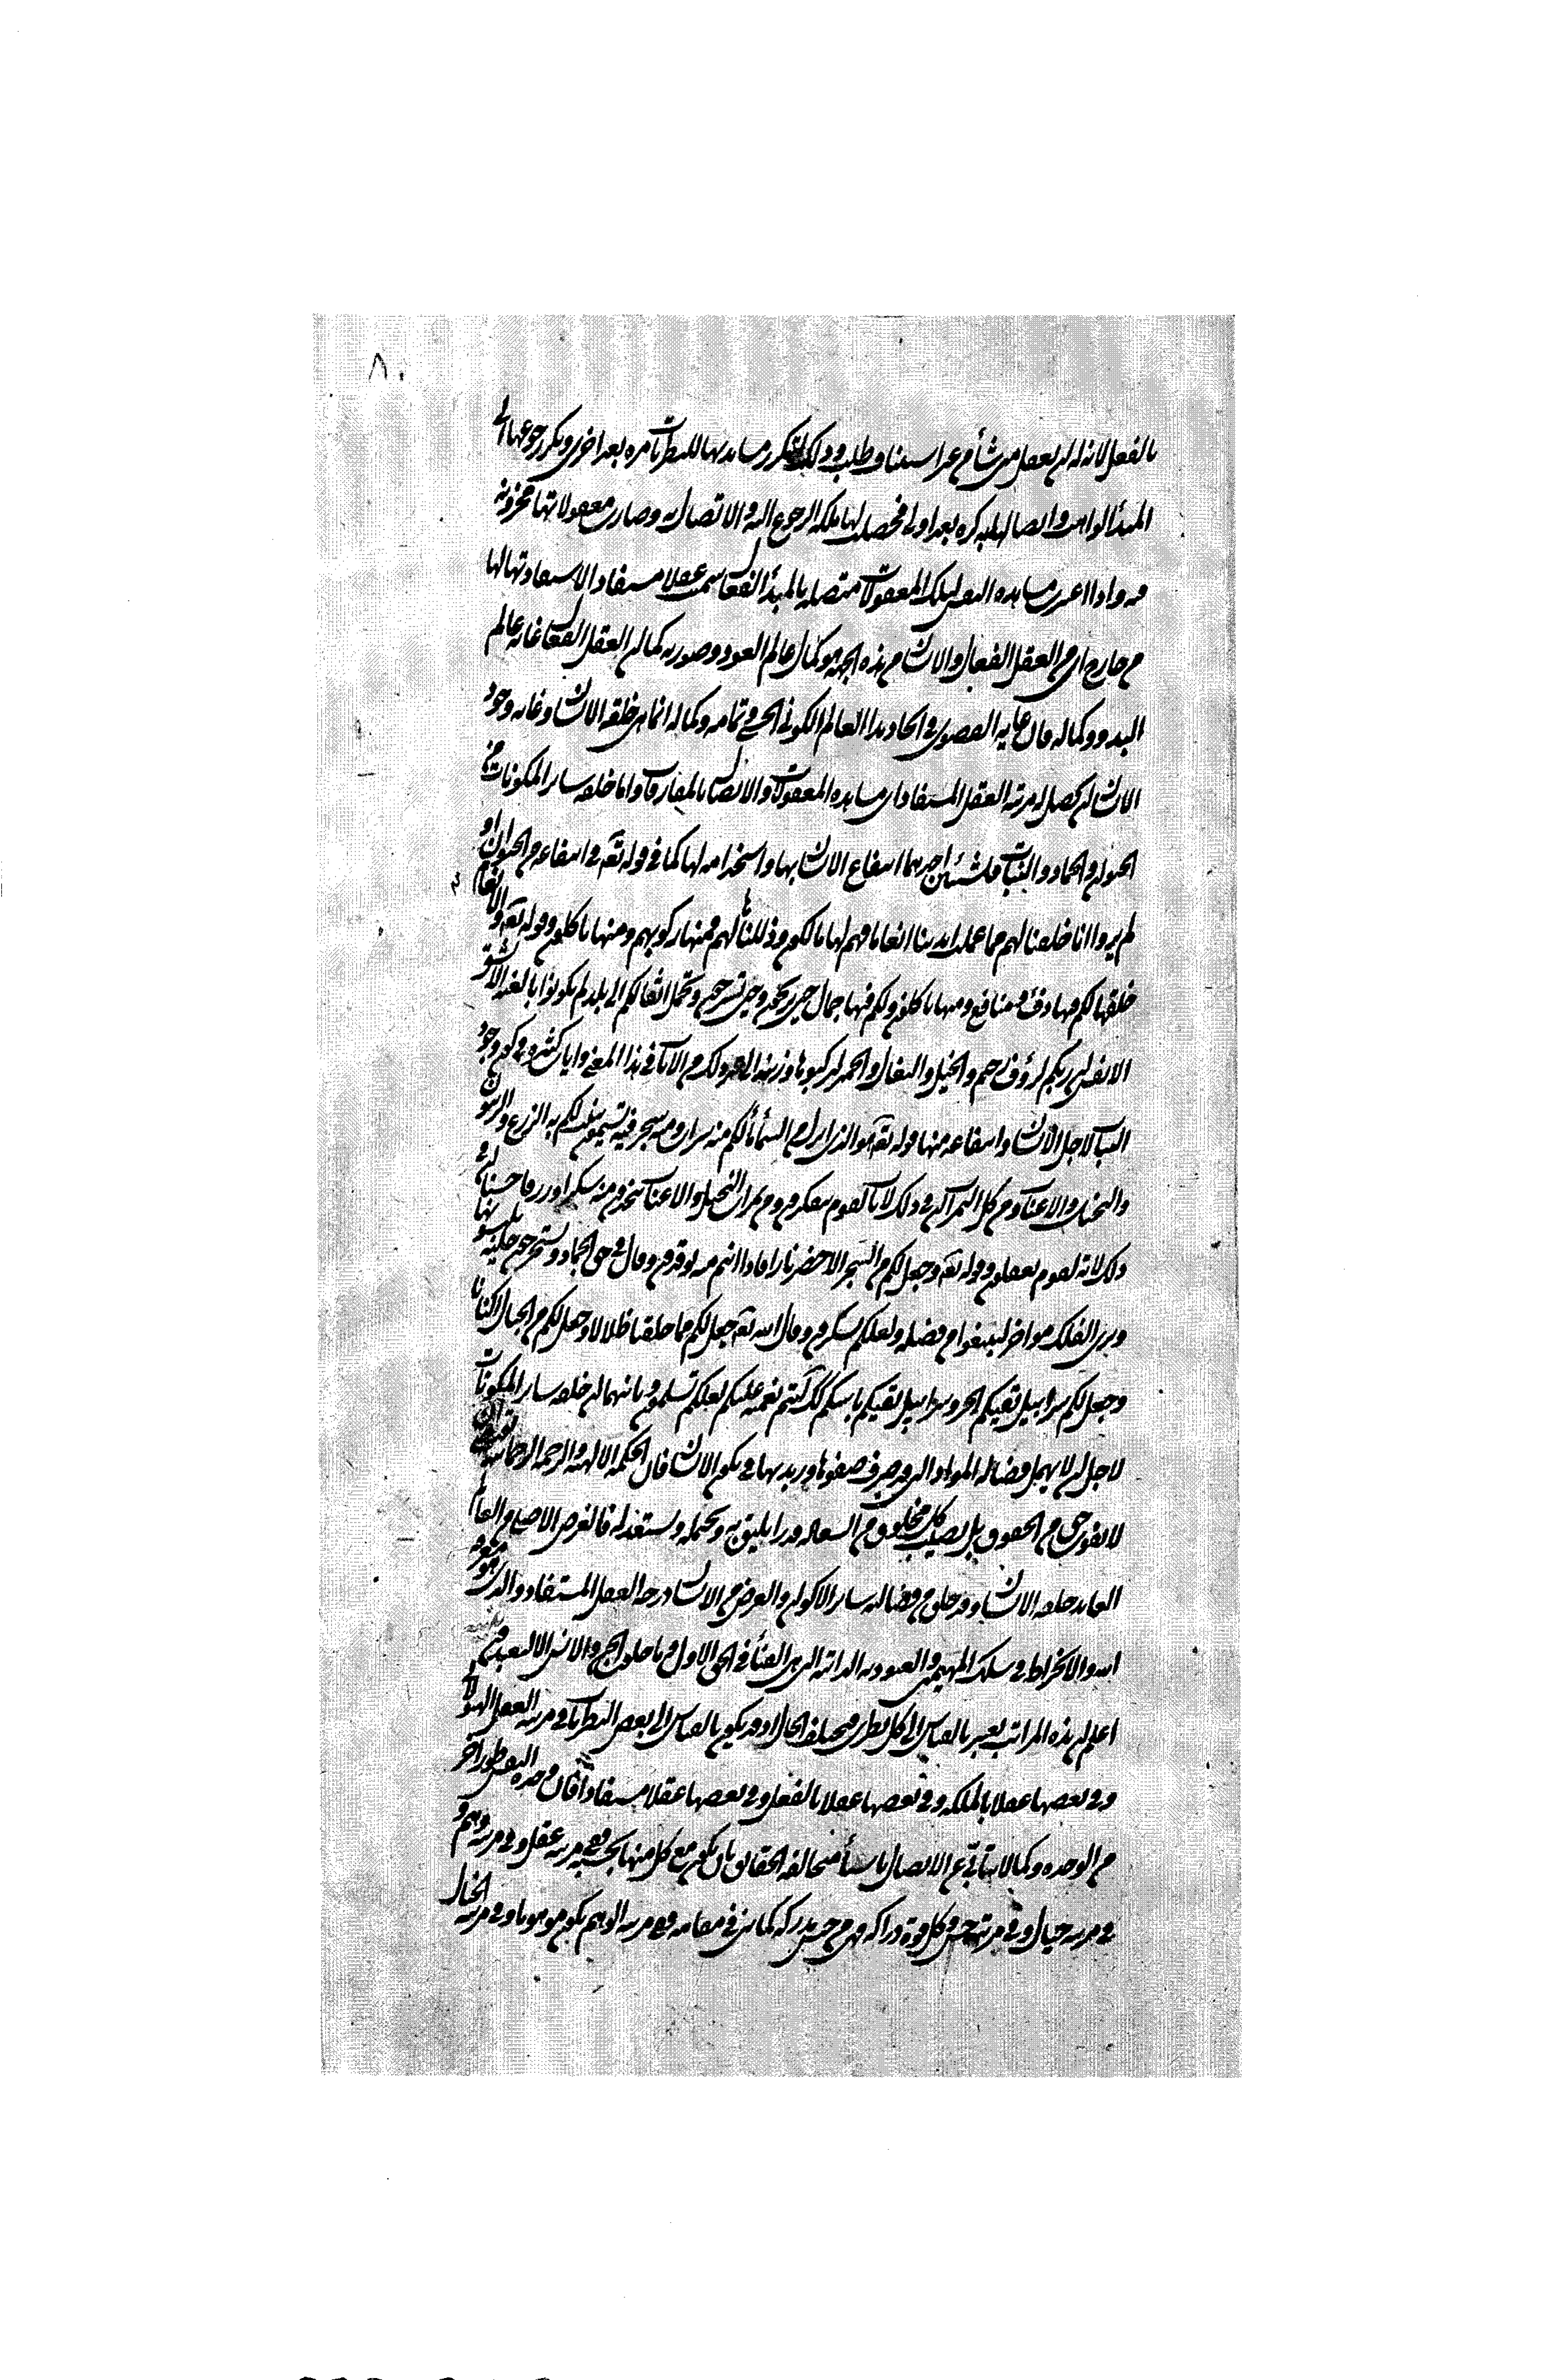 ٨٠
بالفعل لانه له ان يعقل متى شاء من غير استيناف طلب وذلك لتكرر مشاهدتها للنظريات مرة بعد اخرى وتكرر رجوعها الى
المبدأ الواهب واتصالها به كرة بعد اولى فحصلت لها ملكة الرجوع اليه والاتصال به وصارت معقولاتها مخزونة
فيه واذا اعتبرت مشاهدة النفس لتلك المعقولات متصلة بالمبدأ الفعال سميت عقلا مستفادا لاستفادتها لها
من خارج اى من العقل الفعال والانسان من هذه الجهة هو كمال عالم العود وصورته كما ان العقل الفعال غاية عالم
البدو وكماله فان غاية القصوى فى ايجاد هذا العالم الكونى الحسى وتمامه وكماله انما هى خلقة الانسان وغاية وجود
الانسان ان يحصل له مرتبة العقل المستفاد اى مشاهدة المعقولات والاتصال بالمفارقات واما خلقة سائر المكونات من
الحيوان والجماد والنبات فلشيئين احدهما انتفاع الانسان بها واستخدامه لها كما فى قوله تعالى فى انتفاعه من الحيوان او
لم يروا انا خلقنا لهم مما عملت ايدينا انعاما فهم لها مالكون وذللناها لهم فمنها ركوبهم ومنها ياكلون وقوله تعه والانعام
خلقها لكم فيها دفء ومنافع ومنها تاكلون ولكم فيها جمال حين تريحون وحين تسرحون وتحمل اثقالكم الى بلد لم تكونوا بالغيه الا بشق
الانفس ان ربكم لرؤف رحيم والخيل والبغال والحمير لتركبوها وزينة وذلك من الآيات فى هذا المعنى واياك كثيرة وفى كون وجود
النبات لاجل الانسان وانتفاعه منها قوله تعه هو الذى انزل من السماء ماء لكم منه شراب ومنه شجر فيه تسيمون ينبت لكم به الزرع والزيتون
والنخيل والاعناب ومن كل الثمرات ان فى ذلك لآيات لقوم يتفكرون ومن ثمرات النخيل والاعناب تتخذون منه سكرا ورزقا حسنا ان فى
ذلك لآية لقوم يعقلون وقوله تعه وجعل لكم من الشجر الاخضر نارا فاذا انتم منه توقدون وقال فى حق الجماد وتستخرجون حلية تلبسونها
وترى الفلك مواخر لتبتغوا من فضله ولعلكم تشكرون وقال الله تعه جعل لكم مما خلق ظلالا وجعل لكم من الجبال اكنانا
وجعل لكم سرابيل تقيكم الحر وسرابيل تقيكم باسكم كذلك يتم نعمته عليكم لعلكم تسلمون وثانيهما ان خلقة سائر المكونات
لاجل ان لا يهمل فضالة المواد التى قد صرف صفوها وزبدتها فى تكون الانسان فان الحكمة الالهية والرحمة الرحمانية تقتضى
لا يفوت حق من الحقوق بل يصيب كل مخلوق من السعادة قدرا يليق به ويحتمله ويستعد له فالغرض الاصلى من العالم
العابد خلقة الانسان وقد خلق من فضالته سائر الاكوان والغرض من الانسان درجة العقل المستفاد والذى هو معرفة
الله والانخراط فى سلك المهيمين والعبودية الذاتية التى هى الفناء فى الحق الاول وما خلقت الجن والانس الا ليعبدون ثم
اعلم ان هذه المراتب يعتبر بالقياس الى كل نظرى فيختلف الحال اذ قد يكون بالقياس الى بعض النظريات فى مرتبة العقل الهيولا
وفى بعضها عقلا بالملكة وفى بعضها عقلا بالفعل وفى بعضها عقلا مستفادا فان فى هذه النفس طور آخر
من الوحدة وكمالا يتأتى عن الاتصال باشياء متخالفة الحقائق بان يكون مع كل منها بحسبه ففى مرتبة عقل وفى مرتبة وهم و
فى مرتبة خيال وفى مرتبة حس وكل قوة دراكة فهى من جنس يدركه كما بين فى مقامه ففى مرتبة الوهم يكون موهوما وفى مرتبة الخيال